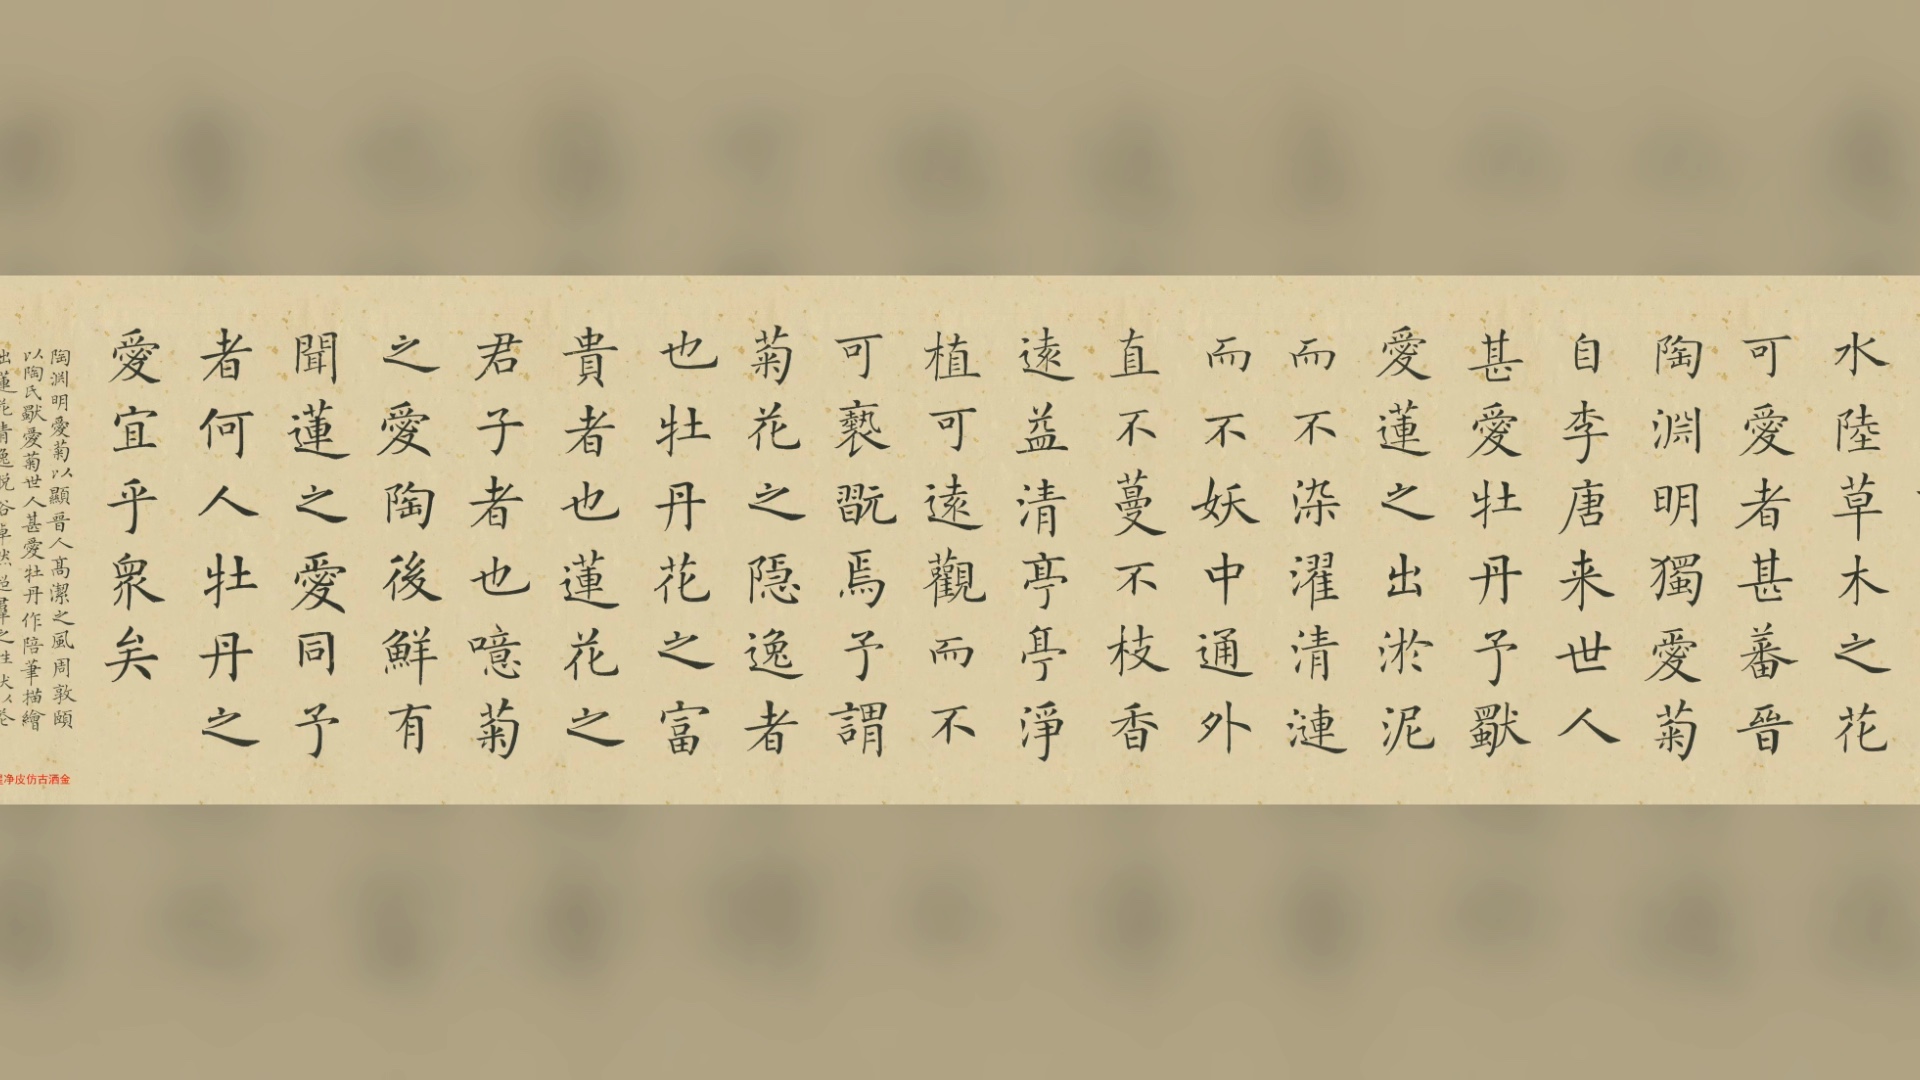 水陸草木之花
可愛者甚蕃晉
陶淵明獨愛菊
自李唐来世人
甚愛牡丹予獨
愛蓮之出淤泥
而不染濯清漣
而不妖中通外
直不蔓不枝香
遠益清亭亭淨
植可遠觀而不
可褻翫焉予謂
菊花之隠逸者
也牡丹花之富
貴者也蓮花之
君子者也噫菊
之愛陶後鮮有
聞蓮之愛同予
者何人牡丹之
愛宜乎衆矣
陶淵明愛菊以顯晉人髙潔之風周敦頤
以陶氏獨愛菊世人甚愛牡丹作陪筆描繪
净皮仿古洒金